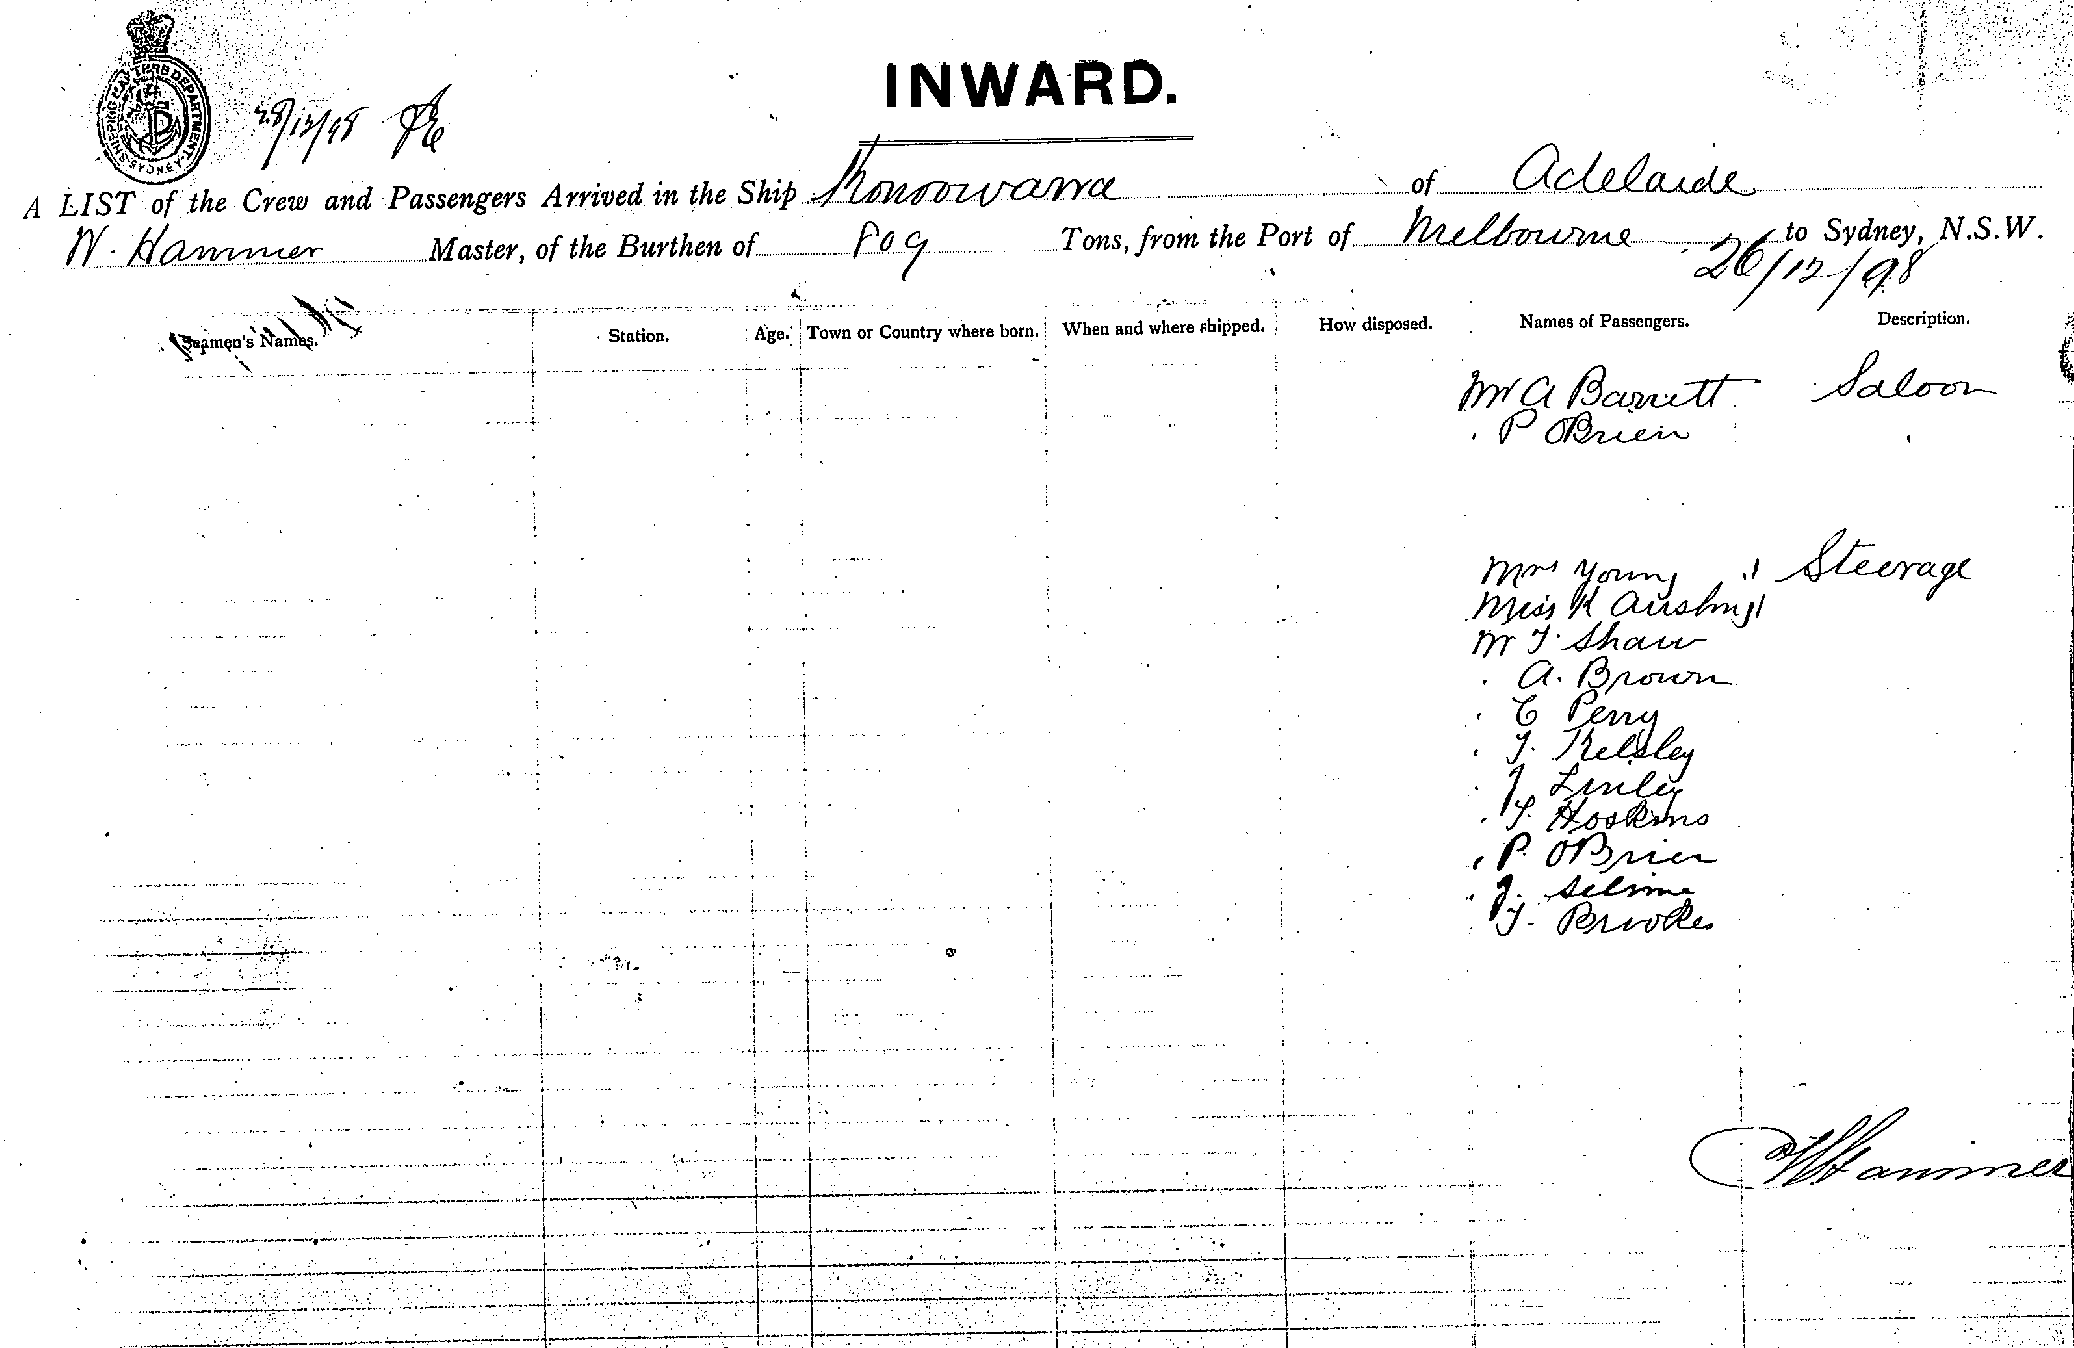 INWARD.
28/12/98
A LIST of the Crew and Passengers Arrived in the Ship Konoowarra of Adelaide
W. Hammer Master, of the Burthen of 809 Tons, from the Port of Melbourne to Sydney, N.S.W.
26/12/98
Seamen's Names. Station. Age. Town or Country where born. When and where shipped. How disposed. Names of Passengers. Description.
Mr A Barrett Saloon
. P OBrien
Mrs Young Steerage
Miss K
Mr T. Shaw
. A. Brown
. C Perry
. T. Kelsley
. J Linley
. T. Hoskins
. P. OBrien
. J.
. T. Brookes
W Hammer